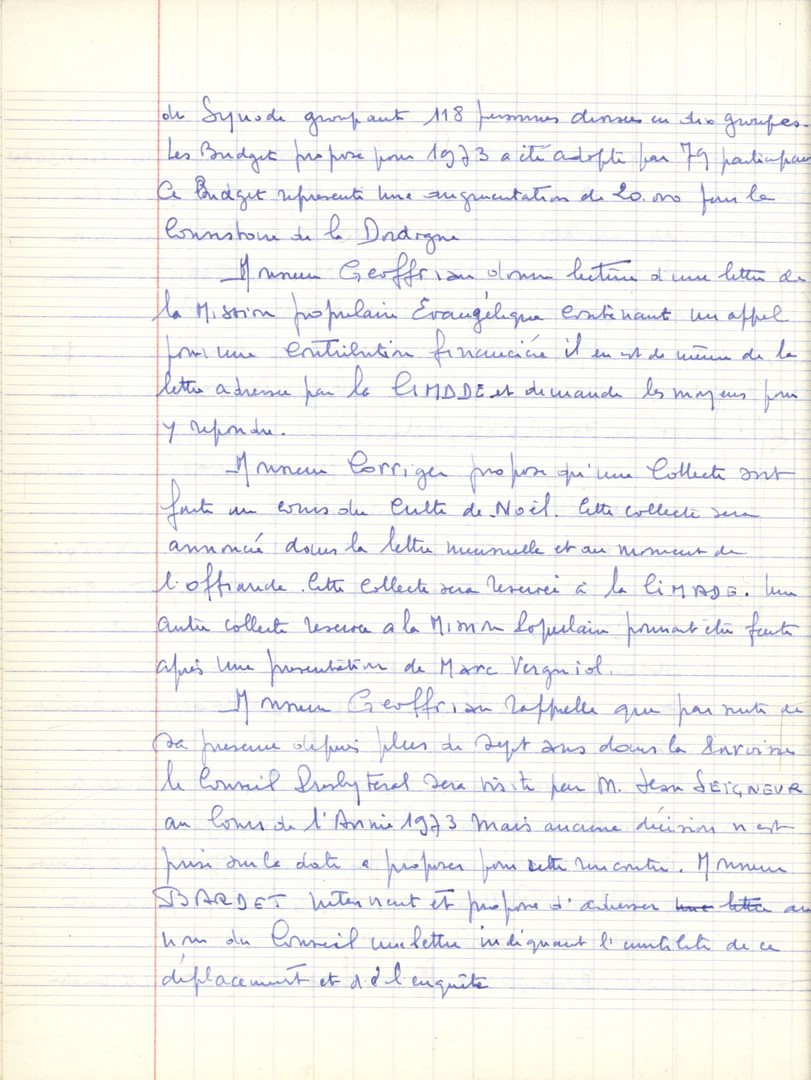 du Synode groupant 118 personnes divisées en dix groupes.
Les Budget propose pour 1973 a été adopté par 79 participans
Ce Budget represente une augmentation de 20.000 pour le
Consistoire de la Dordogne
Monsieur Geoffriau donne lecture d'une lettre de
la Mission populaire Evangélique contenant un appel
pour une contribution financière il en est de même de la
lettre adressée par la CIMADE et demande les moyens pour
y repondre.
Monsieur Corriger propose qu'une Collecte soit
faite au cours du Culte de Noël. Cette collecte sera
annoncée dans la lettre mensuelle et au moment de
l'offrande. Cette collecte sera reservée à la CIMADE. Une
autre collecte reservee a la Mission Populaire pourrait être faite
après une presentation de Marc Vergniol.
Monsieur Geoffriau rappelle que par suite de
sa presence depuis plus de sept ans dans la Paroisse
le Conseil Presbyteral sera visité par M. Jean SEIGNEUR
au Cours de l'Année 1973 mais aucune décision n'est
prise sur la date a proposer pour cette rencontre. Monsieur
BARDET intervient et propose d'adresser une lettre au
nom du Conseil une lettre indiquant l'inutilité de ce
déplacement et de l'enquête